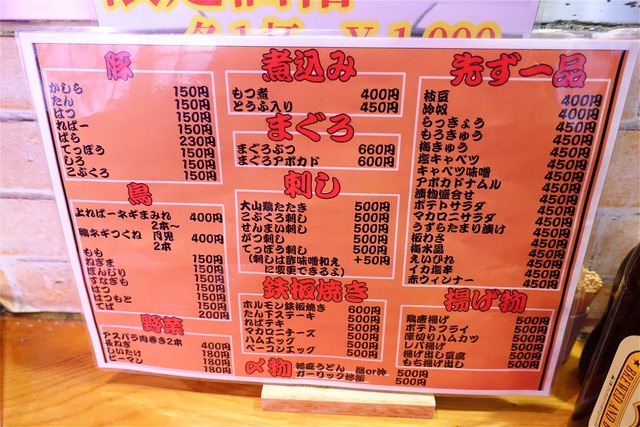 各1杯 ¥1,000
豚
かしら 150円
たん 150円
はつ 150円
ればー 150円
ばら 230円
てっぽう 150円
しろ 150円
こぶくろ 150円
鳥
よればーネギまみれ 400円
2本〜
鶏ネギつくね 月見 400円
2本
もも 150円
ねぎま 150円
ぼんじり 150円
すなぎも 150円
はつ 150円
はつもと 150円
てば 200円
野菜
アスパラ肉巻き2本 400円
まねぎ 180円
しいたけ 180円
ピーマン 180円
煮込み
もつ煮 400円
とうふ入り 450円
まぐろ
まぐろぶつ 660円
まぐろアボカド 600円
刺し
大山鶏たたき 500円
こぶくろ刺し 500円
せんまい刺し 500円
がつ刺し 500円
てっぽう刺し 500円
(刺しは酢味噌和え +50円
に変更できるよ)
鉄板焼き
ホルモン鉄板焼き 600円
たん下ステーキ 500円
ればテキ 500円
マカロニチーズ 500円
ハムエッグ 500円
ベーコンエッグ 500円
〆物
稲庭うどん 温or冷 500円
ガーリック炒飯 500円
先ず一品
枝豆 400円
冷奴 400円
らっきょう 450円
もろきゅう 450円
梅きゅう 450円
塩キャベツ 450円
キャベツ味噌 450円
アボカドナムル 450円
漬物盛合せ 450円
ポテトサラダ 450円
マカロニサラダ 450円
うずらたまり漬け 450円
板わさ 450円
梅水晶 450円
えいひれ 450円
イカ塩辛 450円
赤ウィンナー 450円
揚げ物
鶏唐揚げ 500円
ポテトフライ 500円
厚切りハムカツ 500円
レバ揚げ 500円
揚げ出し豆腐 500円
もち揚げ出し 500円